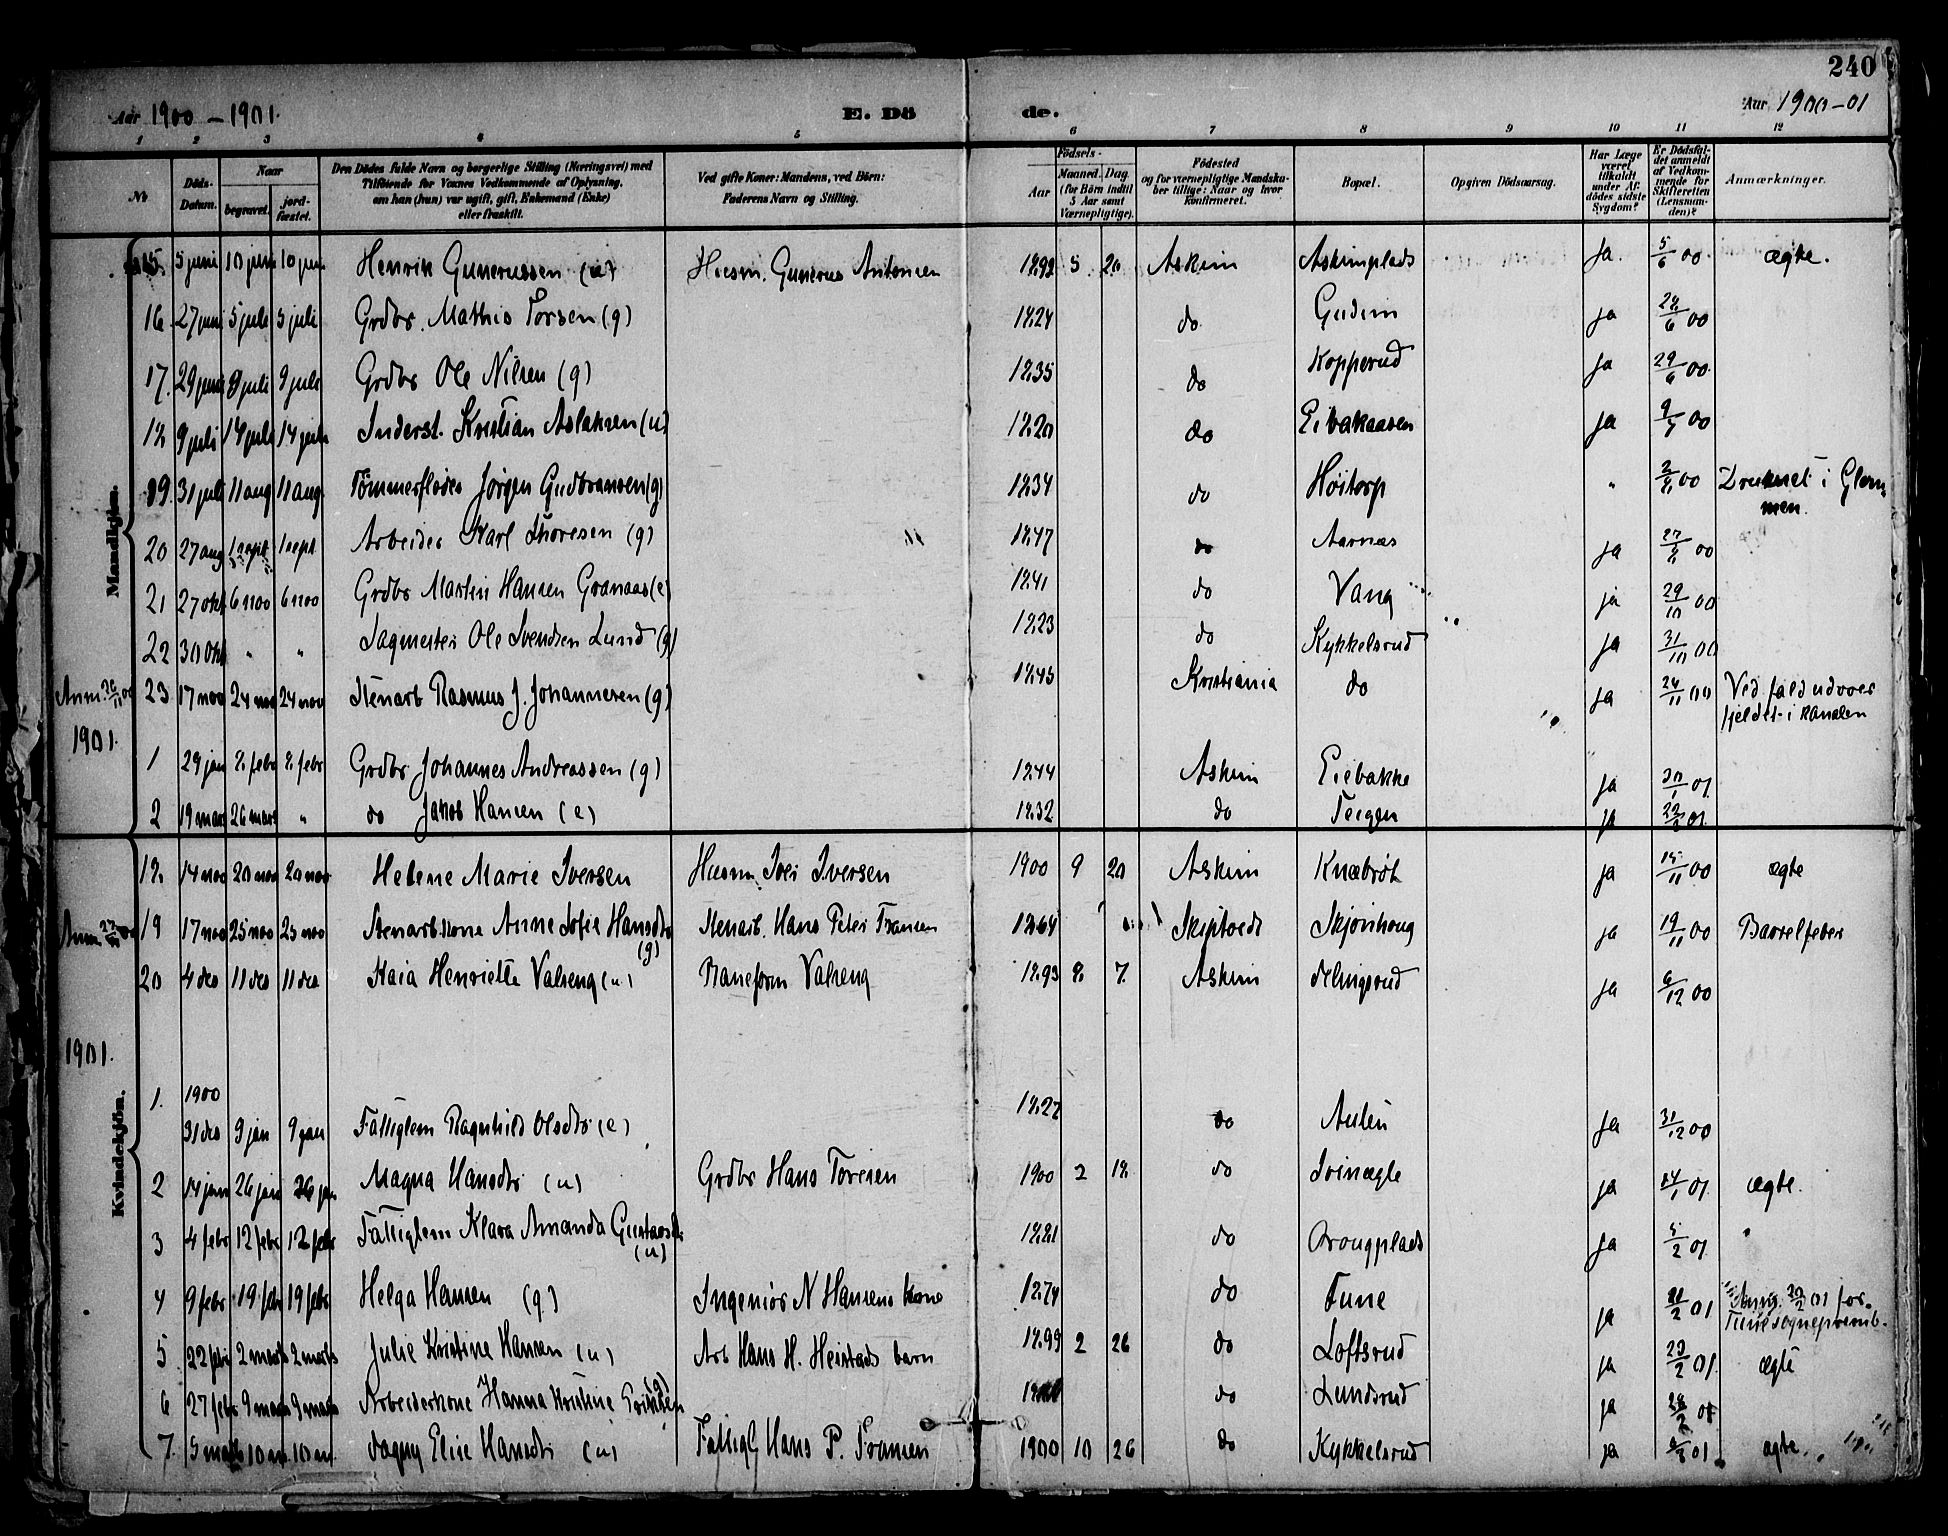 240
Aar 1900 – 1901.
E. Dö
de.
Aar 1900–01
1 2 3 4 5 6 7 8 9 10 11 12
№ Døds-Datum. Naar begravet. jord-fæstet. Den Dödes fulde Navn og borgerlige Stilling (Næringsvei) med Tilföiende for Voxnes Vedkommende af Oplysning, om han (hun) var ugift, gift, Enkemand (Enke) eller fraskilt. Ved gifte Koner: Mandens, ved Börn: Faderens Navn og Stilling. Födsels- Aar Maaned. Dag. (for Börn indtil 5 Aar samt Værnepligtige). Födested og for værnepligtige Mandskaber tillige: Naar og hvor konfirmeret. Bopæl. Opgiven Dödsaarsag. Har Læge været tilkaldt under Afdödes sidste Sygdom? Er Dödsfaldet anmeldt af Vedkommende for Skifteretten (Lensmanden)? Anmærkninger.
Mandkjön.
15. 5 juni 10 juni 10 juni Henrik Gunerussen (u) Husm. Gunerus Antonsen 1892 5 20 Askim Askimplads Ja 5/6 00 ægte.
16. 27 juni 5 juli 5 juli Grdbr. Mathis Torsen (g) 1824 do Gudim ja 28/6 00
17. 29 juni 9 juli 9 juli Grdbr Ole Nilsen (g) 1835 do Kopperud Ja 29/6 00
18 9 juli 14 juli 14 juli Inderst. Kristian Aslaksen (u) 1820 do Eibakaasen ja 9/7 00
19. 31 juli 11 aug 11 aug. Tömmerfløder Jörgen Gudbransen (g) 1834 do Høitorp " 2/8 00 Druknet i Glom-
men.
20 27 aug 1 sept 1 sept. Arbeider Karl Thoresen (g) 1847 do Aarnæs ja 27/8 00
21 27 okt 6 1100 6 1100 Grdbr Martin Hansen Granaas (e) 1841 do Vang ja 29/10 00
22 30 Okt " " Sagmester Ole Svendsen Lund (g) 1823 do Kykkelsrud ja 31/10 00
Anm. 26/11 00 23 17 nov 24 nov 24 nov Stenarb Rasmus J. Johannesen (g) 1843 Kristiania do ja 24/11 00 Ved fald udover
fjeldet i kanalen
1901.
1 29 jan 8 febr 8 febr Grdbr Johannes Andreassen (g) 1844 Askim Eiebakke Ja 30/1 01
2 19 mars 26 mars " do Jakob Hansen (e) 1832 do Teigen ja 01
Kvindekjön.
18. 14 nov 20 nov 20 nov Helene Marie Iversen Husm Iver Iversen 1900 9 20 Askim Knæbröt ja 15/11 00 ægte
Anm 27/11 00 19 17 nov 25 nov 25 nov Stenarb.kone Anne Sofie Hansdtr (g) Stenarb. Hans Peter Fransen 1864 Skiptvedt Skjönhoug ja 19/11 00 Barselfeber
20 4 des 11 des 11 des Kaia Henriette Valseng (u) Baneform Valseng 1893 8 7 Askim Slingsrud ja 6/12 00
1901.
1. 1900
31 des 9 jan 9 jan Fattiglem Ragnhild Olsdtr (e) 1827 do Aslen Ja 31/12 00
2 14 jan 26 jan 26 jan Magna Hansdtr (u) Grdbr Hans Toresen 1900 2 18 do Ivinægle ja 14/1 01 ægte.
3 4 febr 12 febr 12 febr Fattiglem Klara Amanda Gustavsdtr (u) 1881 do Grougplads Ja 5/2 01 "
4 9 febr 19 febr 19 febr Helga Hansen (g) Ingeniör N Hansens kone 1874 do Tune ja 21/2 01 Anm. 20/2 01 for.
Tune sognepræmb.
5 22 febr 2 mars 2 mars Julie Kristine Hansen (u) Arb Hans H. Heistads barn 1899 2 26 do Löftsrud ja 23/2 01 ægte
6 27 febr 9 mars 9 mars Arbeiderkone Hanna Kristine (g) do Lundsrud ja 28/2 01
7. 5 mars 10 m 10 m. Dagny Elise Hansdtr (u) Fattigl Hans P. Fransen 1900 10 26 do Kykkelsrud ja 01 ægte.